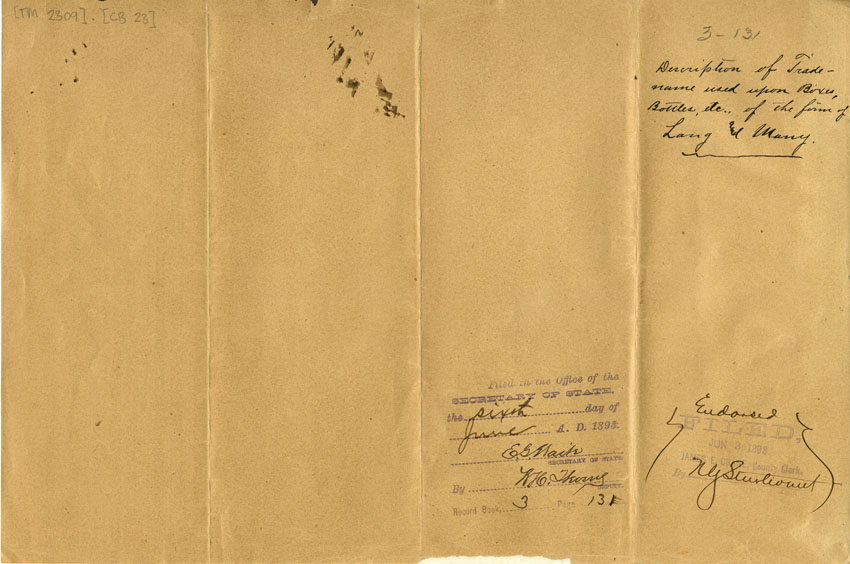 [TM 2309]. [CB 23]
3-131
Description of Trade-
name used upon Boxes,
Bottles, etc., of the firm of
Lang
Filed in the Office of the
SECRETARY OF STATE.
the sixth day of
June A. D. 1893.
E.G. Waite
SECRETARY OF STATE
By W.H.
DEPUTY.
Record Book, 3 Page 131
Endorsed
FILED,
JUN 2 1893
County Clerk.
By